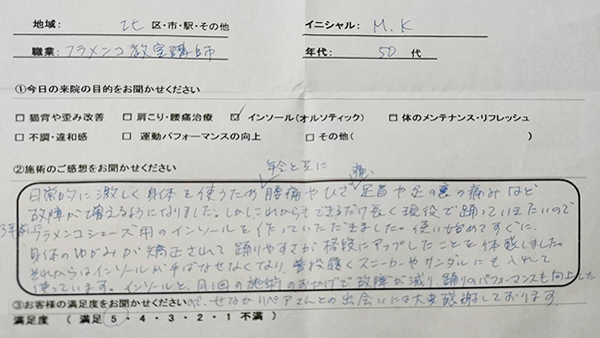 地域: 北 区・市・駅・その他 イニシャル: M.K
職業: フラメンコ教室講師 年代: 50 代
①今日の来院の目的をお聞かせください
□ 猫背や歪み改善 □ 肩こり・腰痛治療 ☑ インソール(オルソティック) □ 体のメンテナンス・リフレッシュ
□ 不調・違和感 □ 運動パフォーマンスの向上 □ その他( )
②施術のご感想をお聞かせください
年令と共に
日常的に激しく身体を使うため腰痛やひざ痛、足首や足の裏の痛みなど
故障が増えるようになりました。しかしこれからもできるだけ長く現役で踊っていきたいので
3年前より
フラメンコシューズ用のインソールを作っていただきました。使い始めてすぐに、
身体のゆがみが矯正されて踊りやすさが格段にアップしたことを体感しました。
それからはインソールが手ばなせなくなり、普段履くスニーカーやサンダルにも入れて
使っています。インソールと、月1回の施術のおかげで故障が減り、踊りのパフォーマンスも向上した
ので、せなかリペアさんとの出会いには大変感謝しております
③お客様の満足度をお聞かせください
満足度 ( 満足 5・4・3・2・1 不満 )